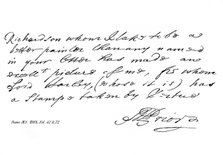 Richardson whom I take to be a
better painter than any named
in your letter has made an
excellt picture of me, from whom
Lord Harley, (whose it is) has
a Stamp taken by Vertue
MPrior